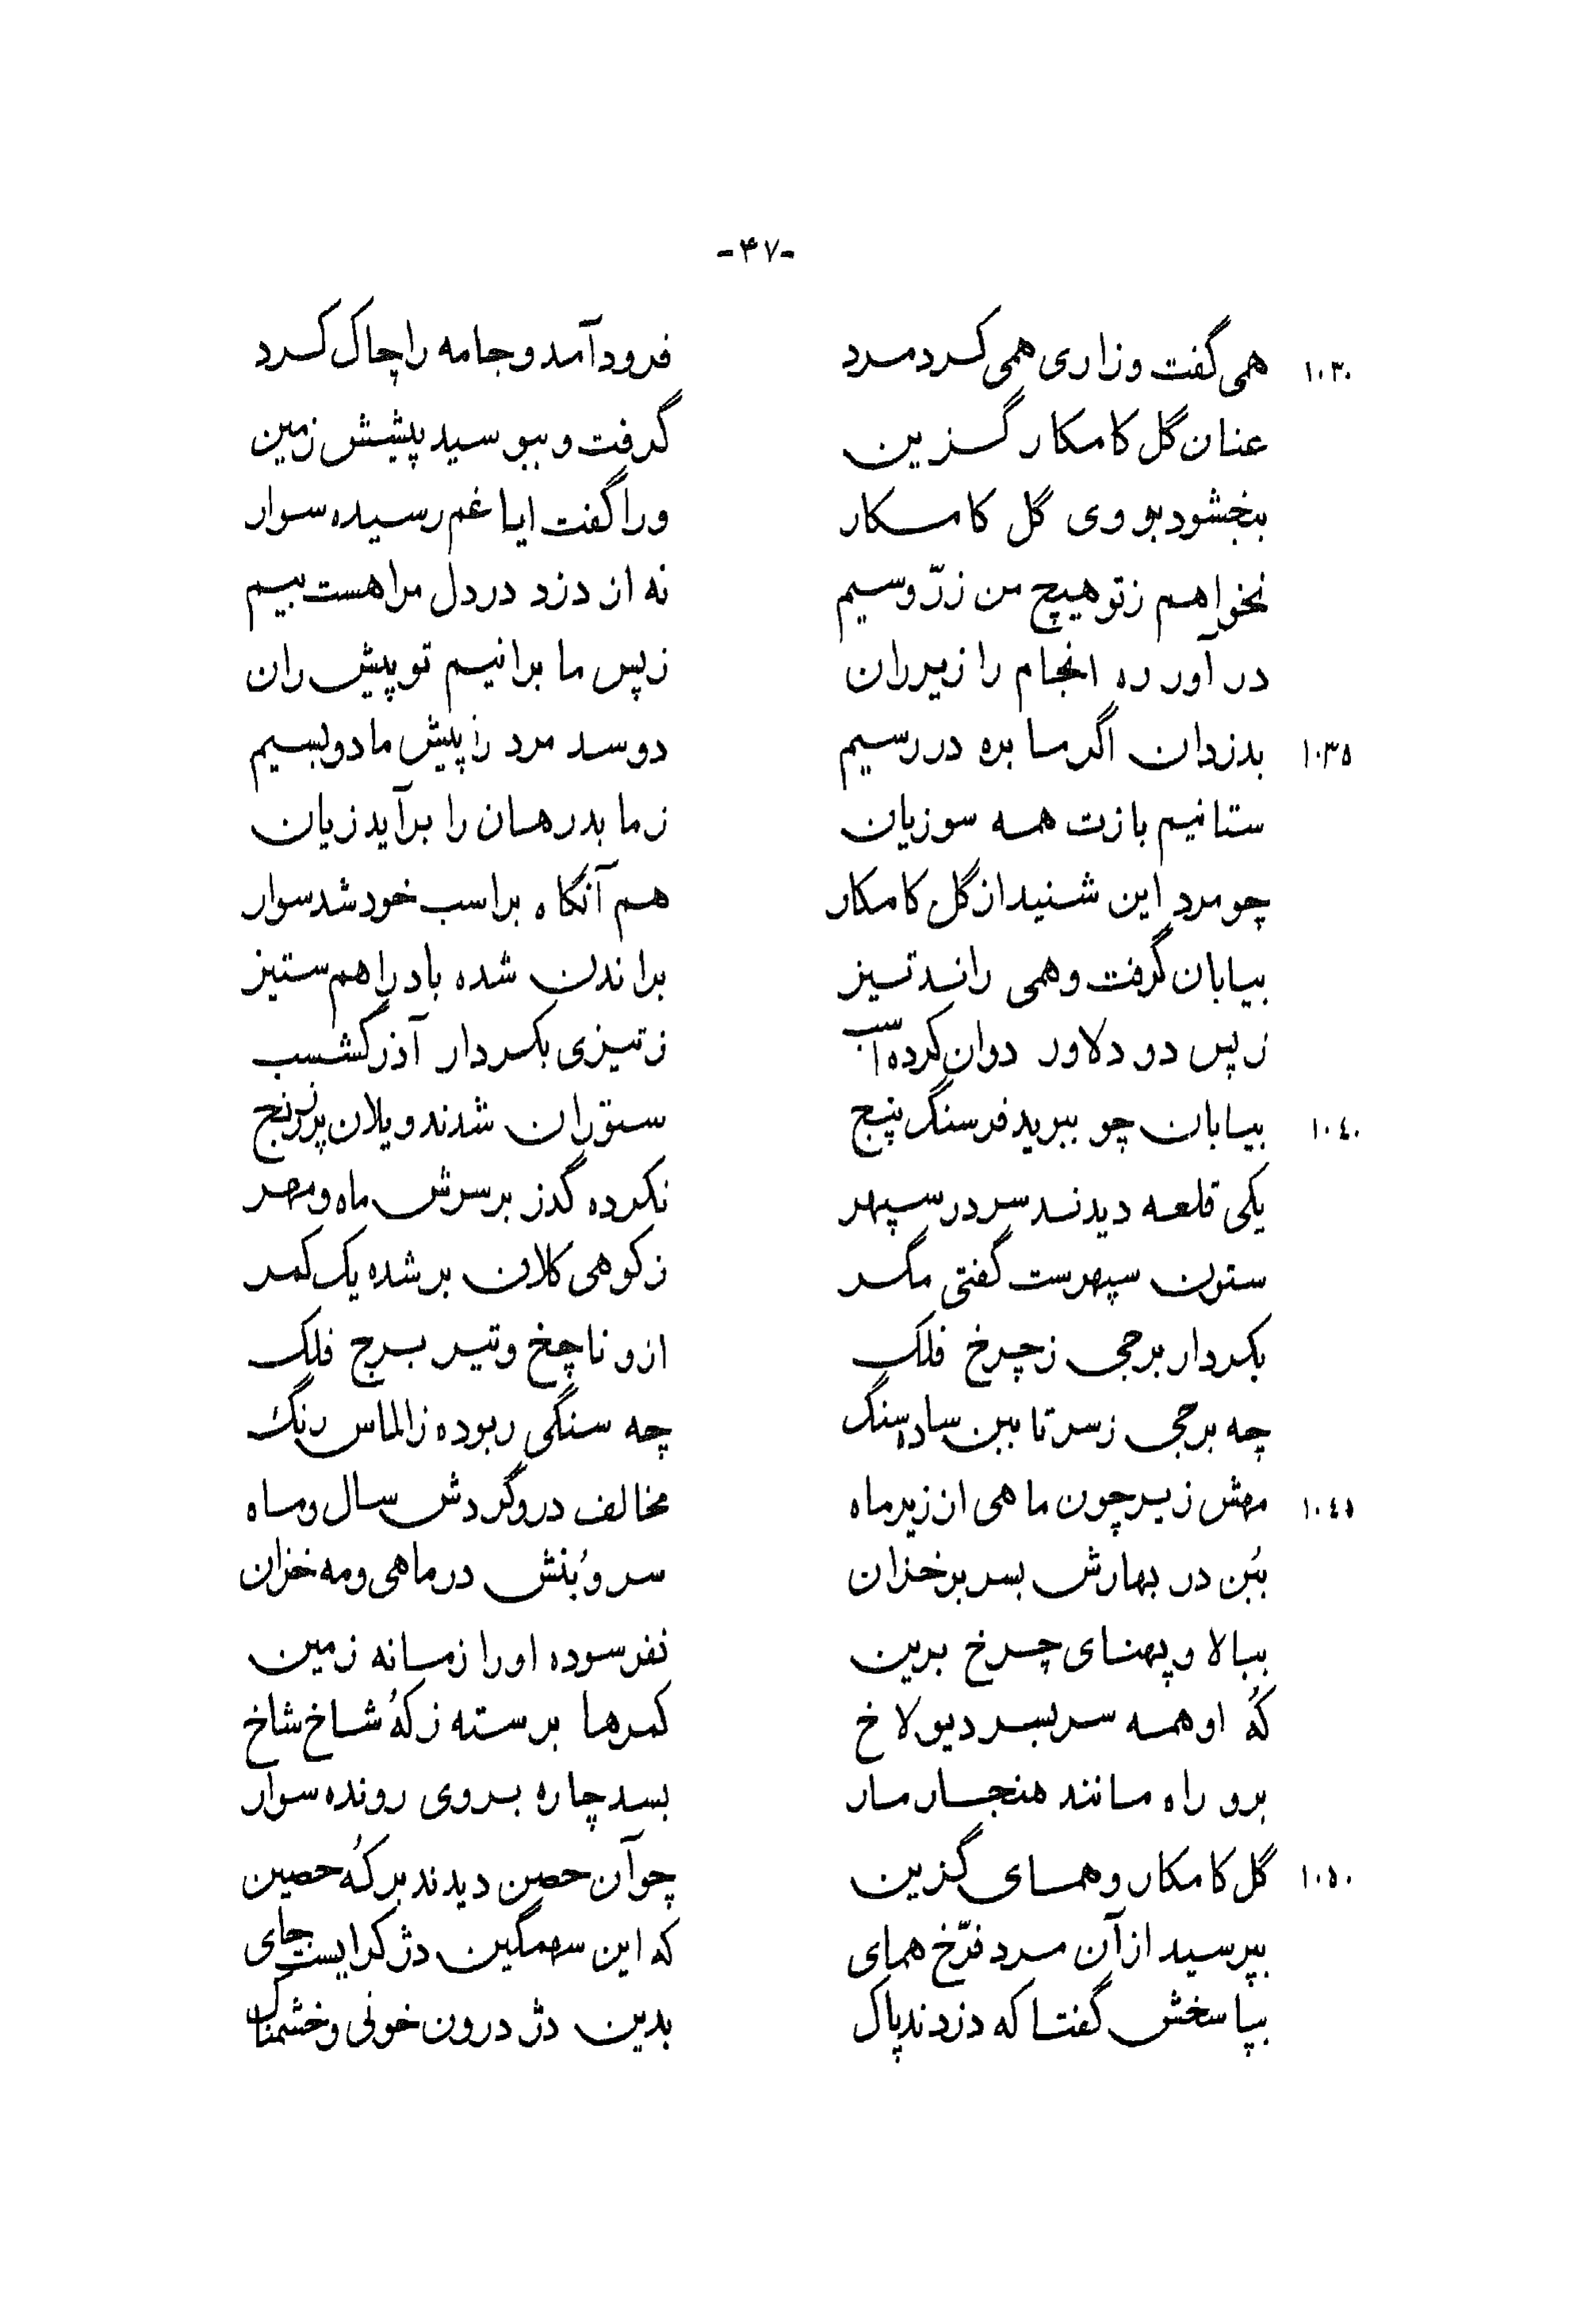 -۴۷-
۱۰۳۰ همی گفت وزاری همی کرد مرد فرود آمد و جامه را چاک کرد
عنان گل کامکار گزین گرفت و ببوسید پیشش زمین
ببخشود بر وی گل کامکار ورا گفت ایا غم رسیده سوار
نخواهم ز تو هیچ من زرّ و سیم نه از دزد در دل مرا هست بیم
در آور ره انجام را زیر ران ز پس ما برانیم تو پیش ران
۱۰۳۵ بدزدان اگر ما بره در رسیم دو سد مرد را پیش ما دو بسیم
ستانیم بازت همه سوزیان ز ما بدرهان را برآید زیان
چو مرد این شنید از گل کامکار هم آنگاه بر اسب خود شد سوار
بیابان گرفت و همی راند تیز براندن شده باد را هم ستیز
ز پس دو دلاور دوان کرده اسب ز تیزی بکردار آذر گشسب
۱۰۴۰ بیابان چو ببرید فرسنگ پنج ستوران شدند و یلان پر ز رنج
یکی قلعه دیدند سر در سپهر نکرده گذر بر سرش ماه و مهر
ستون سپهرست گفتی مگر ز کوهی کلان بر شده یک کمر
بکردار برجی ز چرخ فلک ازو ناچخ و تیر برج فلک
چه برجی ز سر تا ببن ساده سنگ چه سنگی ربوده ز الماس رنگ
۱۰۴۵ مهش زیر چون ماهی از زیر ماه مخالف درو گردش سال و ماه
ببُن در بهارش بسر بر خزان سر و بُنش در ماهی و مه خزان
ببالا و پهنای چرخ برین نفرسوده او را زمانه زمین
کُه او همه سربسر دیولاخ کمرها برسته ز کُه شاخ شاخ
برو راه مانند هنجار مار بسد چاره بروی رونده سوار
۱۰۵۰ گل کامکار و همای گزین چو آن حصن دیدند بر کُه حصین
بپرسید از آن مرد فرّخ همای که این سهمگین دژ کرا یست جای
بپاسخش گفتا که دزدند پاک بدین دژ درون خونی و خشمناک